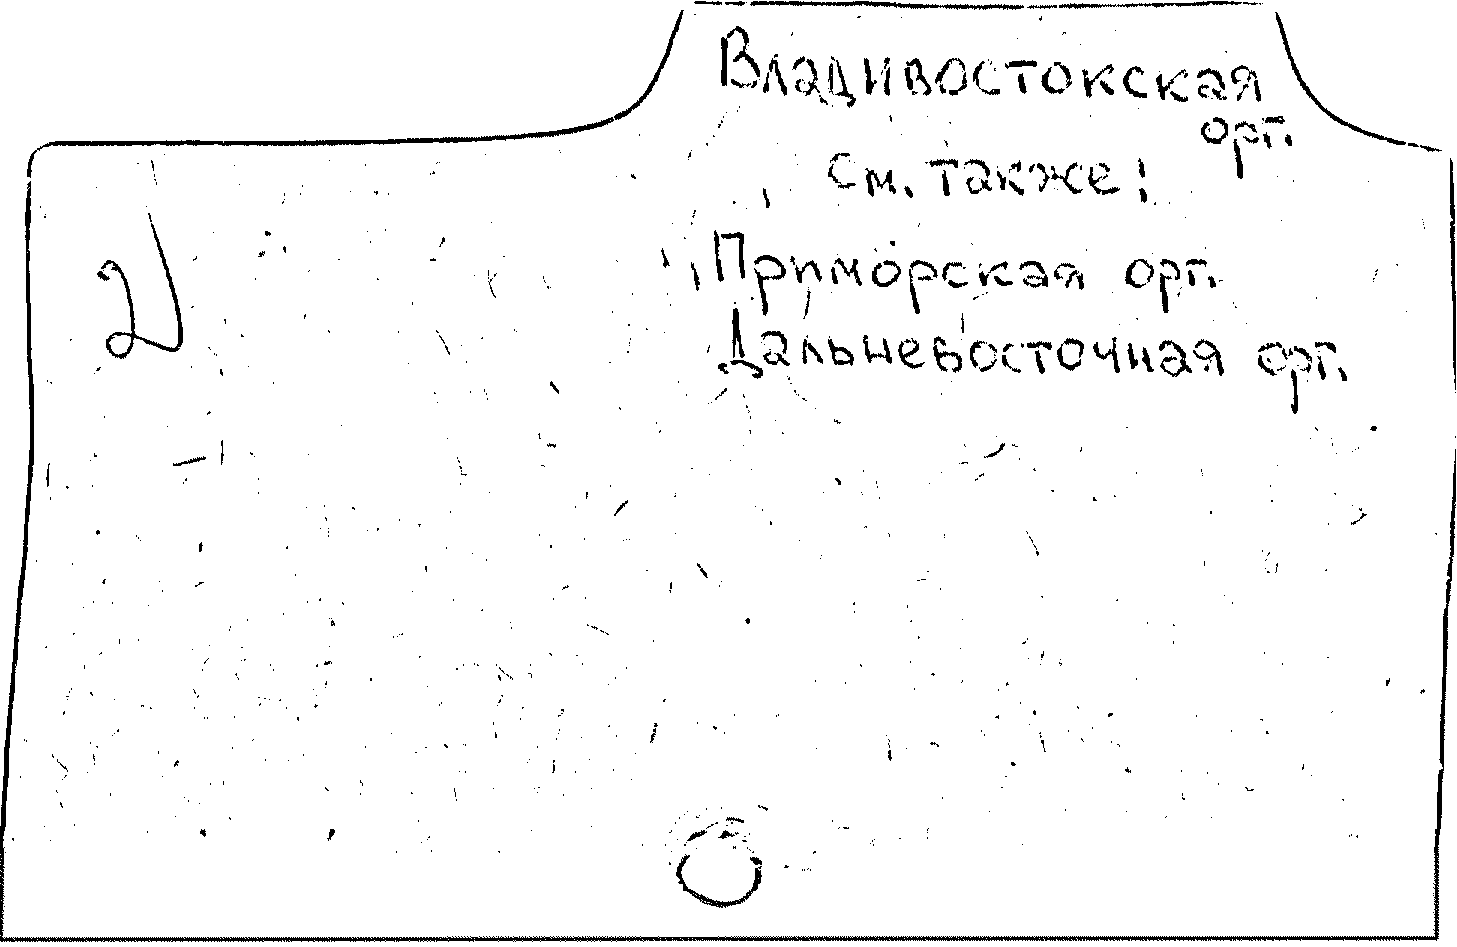 Владивостокская
орг.
См. также:
Приморская орг.
Дальневосточная орг.